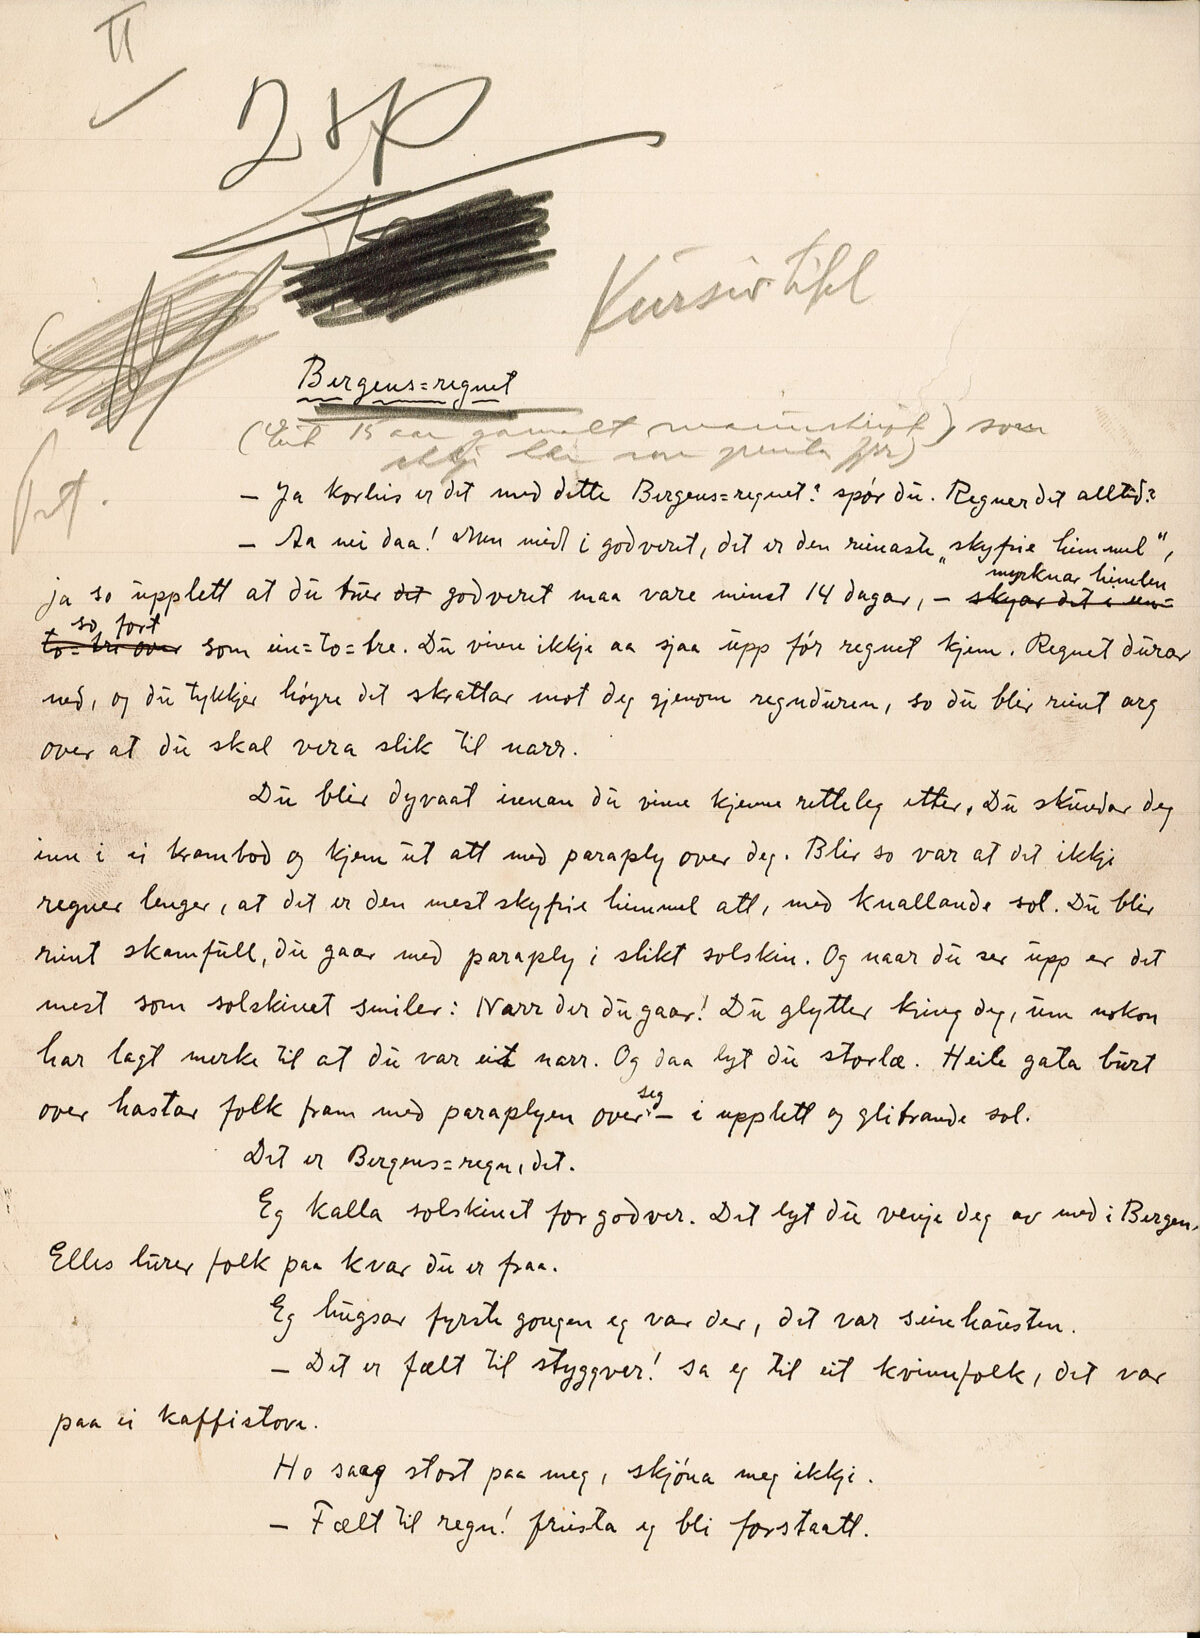 II
2 sp
Kursivtitel
Bergens=regnet
(Eit 15 aar gamalt manuskript) som
ikkje
– Ja korleis er det med dette Bergens=regnet? spór du. Regner det alltid?
– Aa nei daa! Men midt i godveret, det er den reinaste „skyfrie himmel",
myrknar himlen
ja so upplett at du trur det godveret maa vare minst 14 dagar, – skyar det i ein=
so fort
to=tre over som ein=to=tre. Du vinn ikkje aa sjaa upp fór regnet kjem. Regnet durar
ned, og du tykkjer hóyre det skrattar mot deg gjenom regnduren, so du blir reint arg
over at du skal vera slik til narr.
Du blir dyvaat innan du vinn kjenne retteleg etter. Du skundar deg
inn i ei krambod og kjem ut att med paraply over deg. Blir so var at det ikkje
regner lenger, at det er den mest skyfrie himmel att, med knallande sol. Du blir
reint skamfull, du gaar med paraply i slikt solskin. Og naar du ser upp er det
mest som solskinet smiler: Narr der du gaar! Du glytter kring deg, um nokon
har lagt merke til at du var eit narr. Og daa lyt du storlæ. Heile gata burt
seg
over hastar folk fram med paraplyen over – i upplett og glitrande sol.
Det er Bergens=regn, det.
Eg kalla solskinet for godver. Det lyt du venje deg av med i Bergen.
Elles lurer folk paa kvar du er fraa.
Eg hugsar fyrste gongen eg var der, det var seinhausten.
– Det er fælt til styggver! sa eg til eit kvinnfolk, det var
paa ei kaffistova.
Ho saag stort paa meg, skjóna meg ikkje.
– Fælt til regn! freista eg bli forstaatt.